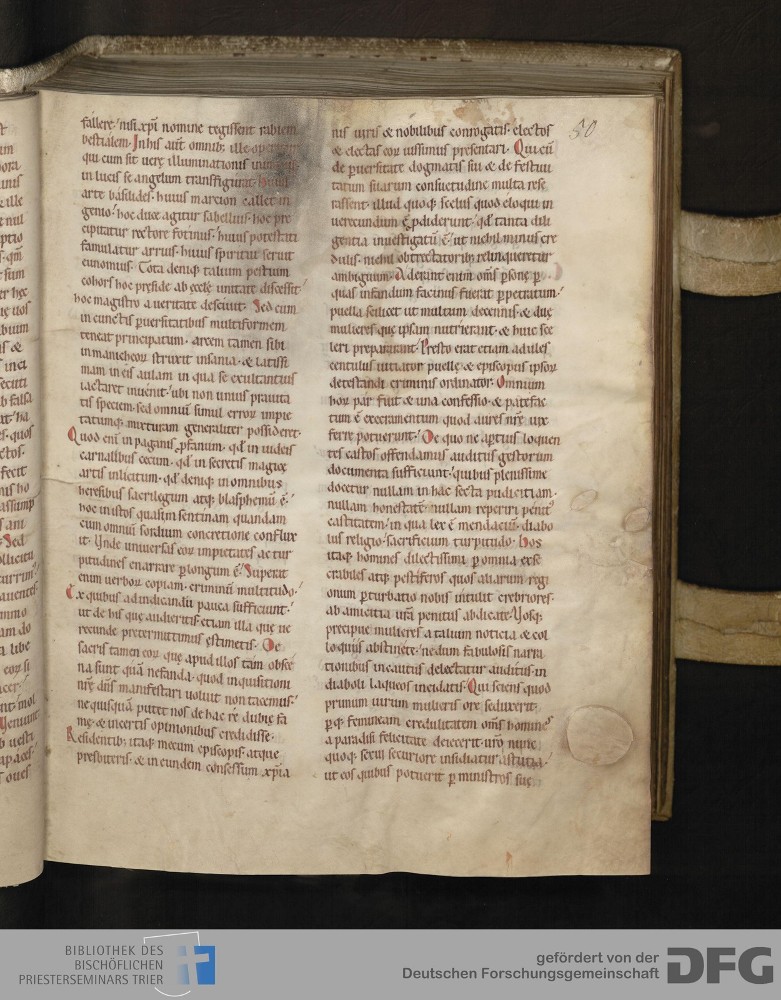 fallere nisi xpi nomine tegissent rabiem
bestialem. In his aut omnib; ille operatur
qui cum sit uere illuminationis
in lucis se angelum transfigurat.
arte basilides. huius marcion callet in
genio. hoc duce agitur sabellius. hoc pre
cipitatur rectore fotinus. huius potestati
famulatur arrius. huius spiritui seruit
eunomius. Tota deniq; talium pestium
cohors hoc preside ab eccle unitate discessit.
hoc magistro a ueritate desciuit. Sed cum
in cunctis puersitatibus multiformem
teneat principatum. arcem tamen sibi
in manicheor struxit insania. & latissi
mam in eis aulam in qua se exultantius
iactaret inuenit. ubi non unius prauita
tis speciem. sed omniu simul error impie
tatumq; mixturam generaliter possideret.
Quod eni in paginis pfanum. qd in iudeis
carnalibus cecum. qd in secretis magice
artis inlicitum. qd deniq; in omnibus
heresibus sacrilegum atq; blasphemu e.
hoc in istos quasi in sentinam quandam
cum omniu sordium concretione conflux
it. Unde uniuersas eor impietates ac tur
pitudines enarrare plongum e. Superat
enim uerbor copiam. criminu multitudo.
Ex quibus ad indicandu pauca sufficiunt.
ut de his que audieritis. etiam illa que ue
recunde pretermittimus estimetis. De
sacris tamen eor que apud illos tam obsce
na sunt qua nefanda. quod inquisitioni
nre dns manifestari uoluit non tacemus.
ne quisqua putet nos de hac re dubie fa
me. & incertis opinionibus credidisse.
Residentib; itaq; mecum episcopis atque
presbiteris. & in eundem consessum xpia
nis uiris & nobilibus conrogatis. electos
& electas eor iussimus presentari. Qui cu
de puersitate dogmatis sui & de festiui
tatum suarum consuetudine multa rese
rassent. illud quoq; scelus quod eloqui in
uerecundum e pdiderunt. qd tanta dili
gentia inuestigatu e. ut nichil minus cre
dulis. nichil obtrectatorib; relinqueretur
ambiguum. Aderant enim oms psone p
quas infandum facinus fuerat ppetratum.
puella scilicet ut multum decennis. & due
mulieres que ipsam nutrierant. & huic sce
leri prepararant. Presto erat etiam adules
centulus uitiator puelle. & episcopus ipsor
detestandi criminis ordinator. Omnium
hor par fuit & una confessio. & patefac
tum e execramentum quod aures nre uix
ferre potuerunt. De quo ne apertius loquen
tes castos offendamus auditus gestorum
documenta sufficiunt. quibus plenissime
docetur nullam in hac secta pudicitiam.
nullam honestate. nullam reperiri penit
castitatem. in qua lex e mendaciu. diabo
lus religio. sacrificium turpitudo. Hos
itaq; homines dilectissimi p omnia exse
crabiles atq; pestiferos quos aliarum regi
onum pturbatio nobis intulit crebriores.
ab amicitia ura penitus abdicate. Uosq;
precipue mulieres a talium noticia & col
loquiis abstinete. ne dum fabulosis narra
tionibus incautus delectatur auditus. in
diaboli laqueos incidatis. Qui sciens quod
primum uirum mulieris ore seduxerit.
pq; femineam credulitatem oms homines
a paradisi felicitate deiecerit. uro nunc
quoq; sexui securiore insidiatur astutia.
ut eos quibus potuerit p ministros sue
50
BIBLIOTHEK DES
BISCHÖFLICHEN
PRIESTERSEMINARS TRIER
gefördert von der
Deutschen Forschungsgemeinschaft
DFG